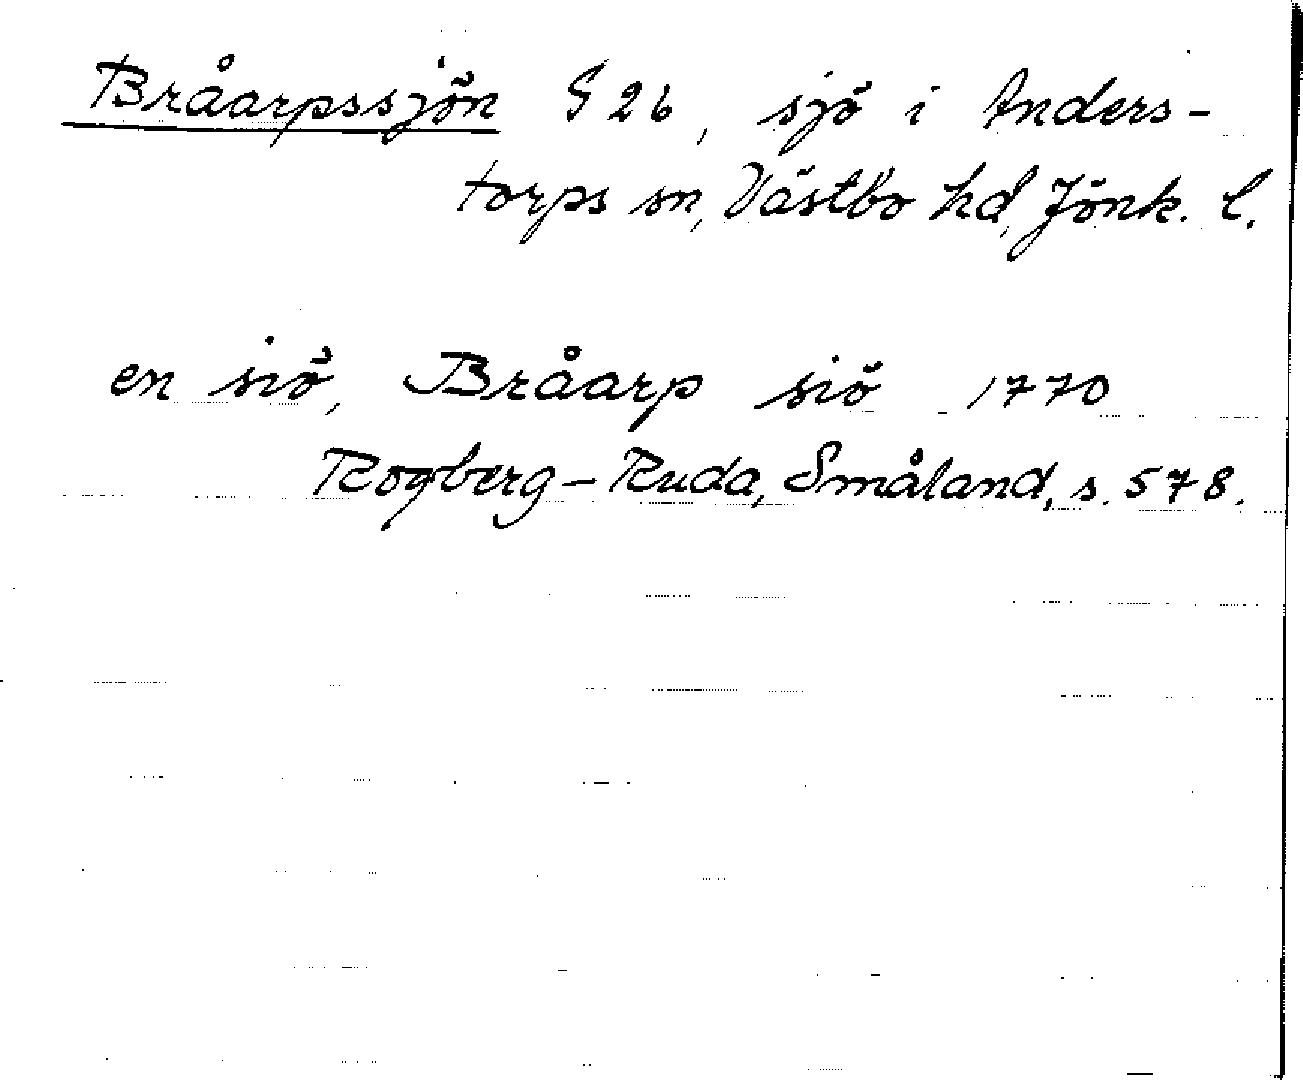 Bråarpssjön S 26, sjö i Anders-
torps sn, Västbo hd, Jönk. l.
en siö, Bråarp siö 1770
Rogberg-Ruda, Småland, s. 578.